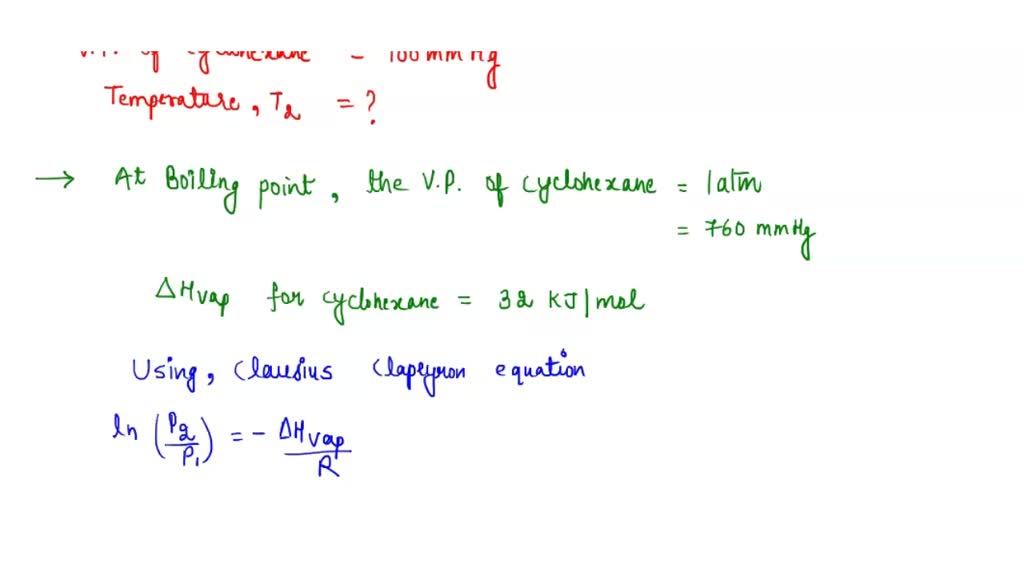 V.P. of cyclohexane = 100 mm Hg
Temperature, T2 = ?
→ At Boiling point, the V.P. of cyclohexane = 1atm
= 760 mmHg
ΔHvap for cyclohexane = 32 KJ/mol
Using, Clausius Clapeyron equation
ln (P2/P1) = - ΔHvap/R